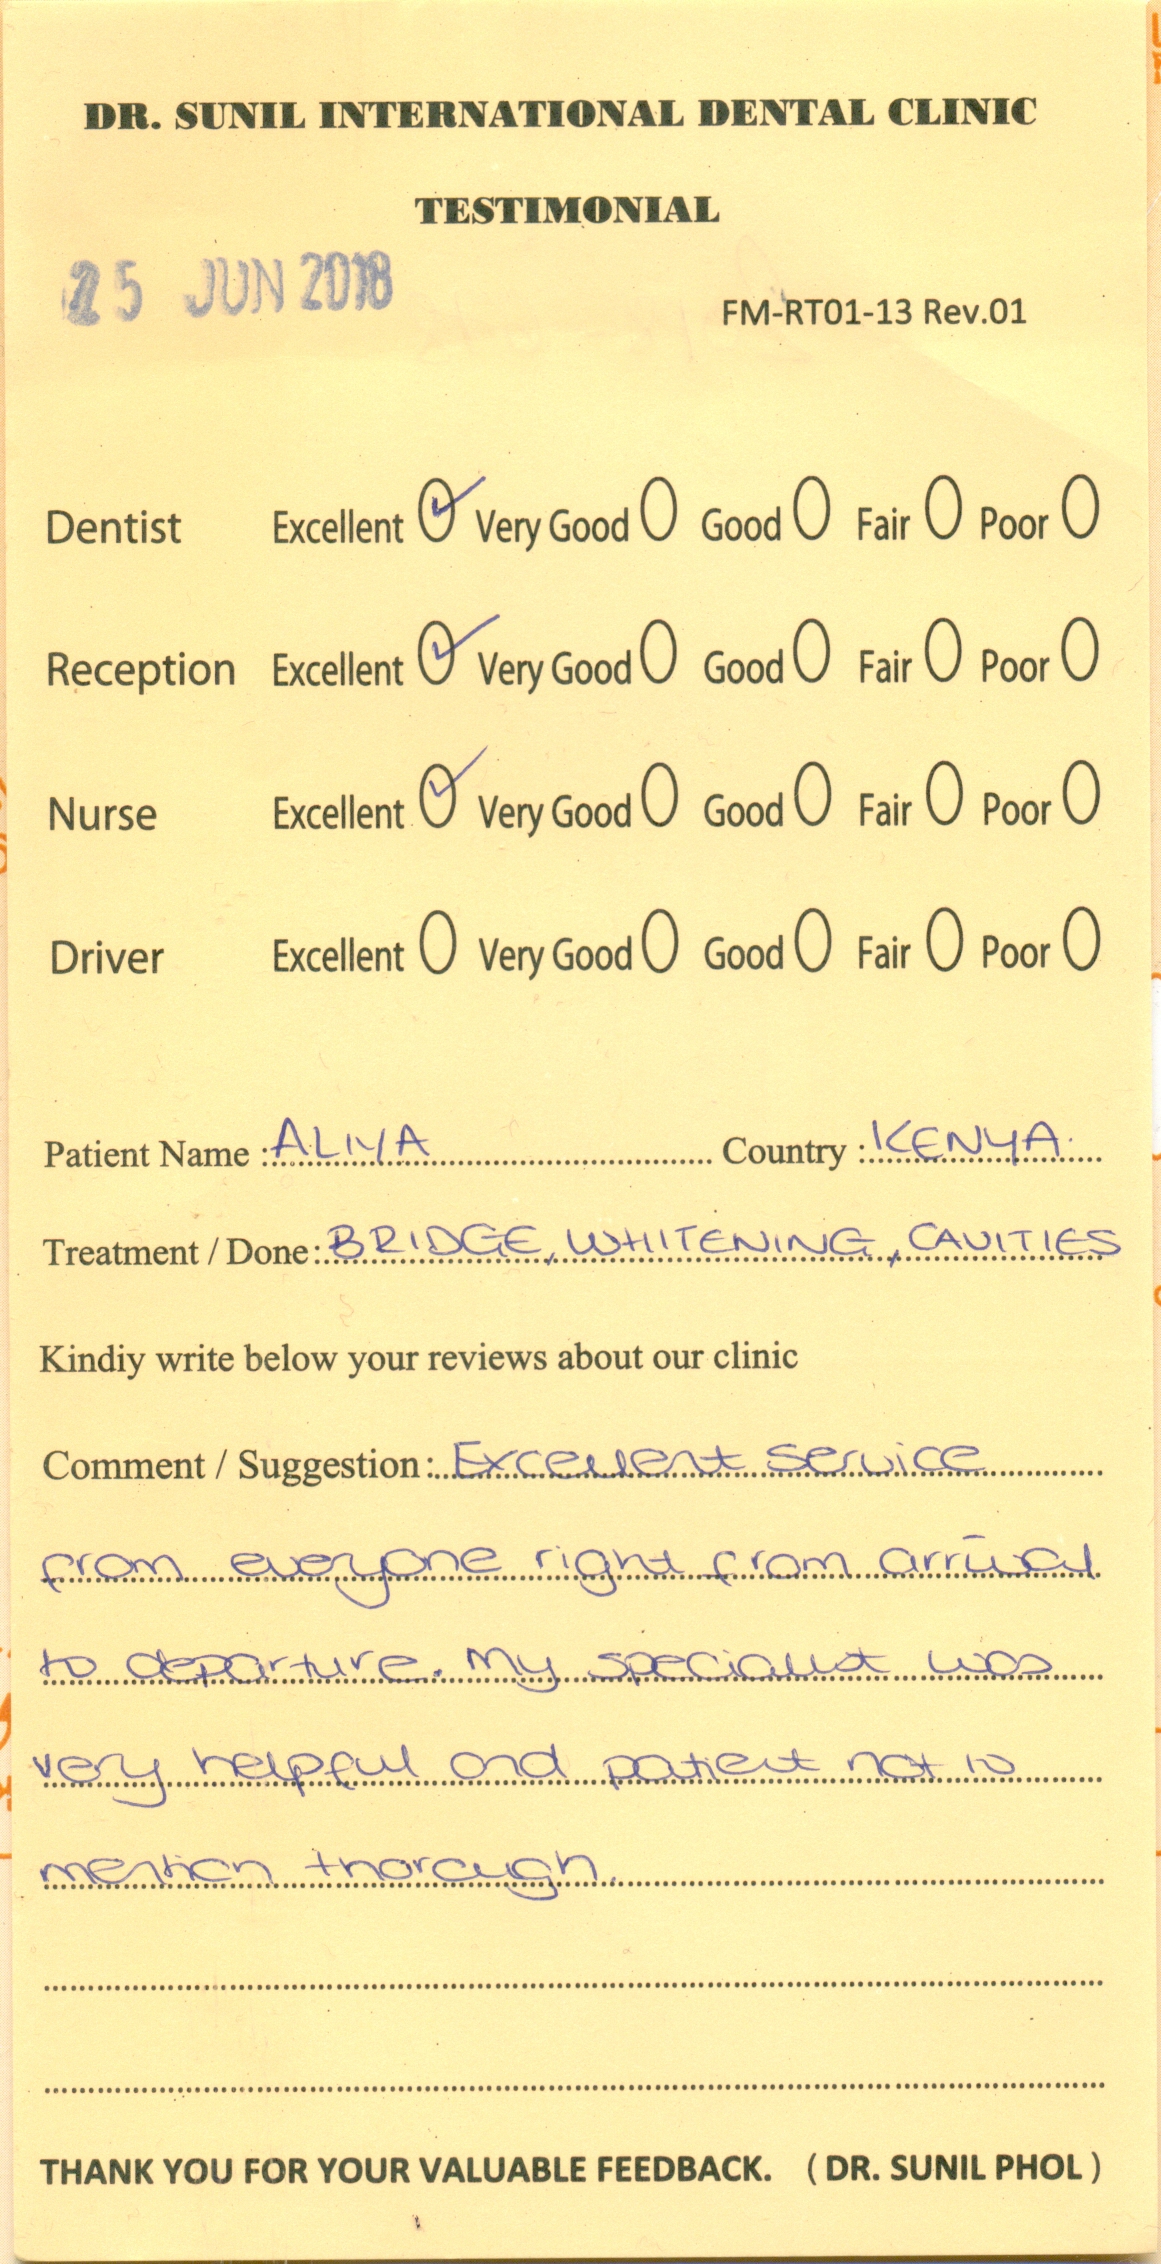 DR. SUNIL INTERNATIONAL DENTAL CLINIC
TESTIMONIAL
25 JUN 2018
FM-RT01-13 Rev.01
Dentist Excellent Very Good Good Fair Poor
Reception Excellent Very Good Good Fair Poor
Nurse Excellent Very Good Good Fair Poor
Driver Excellent Very Good Good Fair Poor
Patient Name : ALIYA Country : KENYA.
Treatment / Done: BRIDGE, WHITENING, CAVITIES
Kindiy write below your reviews about our clinic
Comment / Suggestion: Excellent service
from everyone right from arrival
to departure. My specialist was
very helpful and patient not to
mention thorough.
THANK YOU FOR YOUR VALUABLE FEEDBACK. ( DR. SUNIL PHOL )